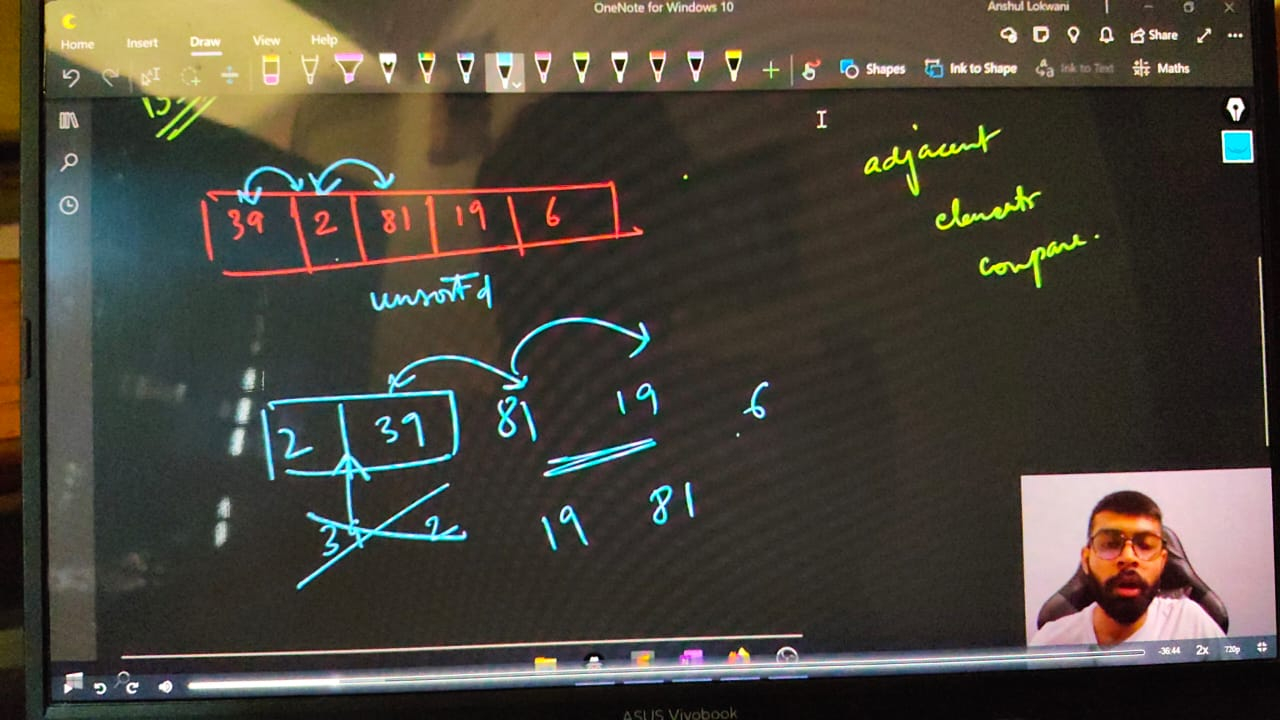 OneNote for Windows 10
Anshul Lokwani
Home Insert Draw View Help
Share
Shapes Ink to Shape Ink to Text Maths
adjacent
elements
compare.
39 2 81 19 6
unsort d
2 39 81 19 6
39 2 19 81
-36:44 2x 720p
ASUS Vivobook